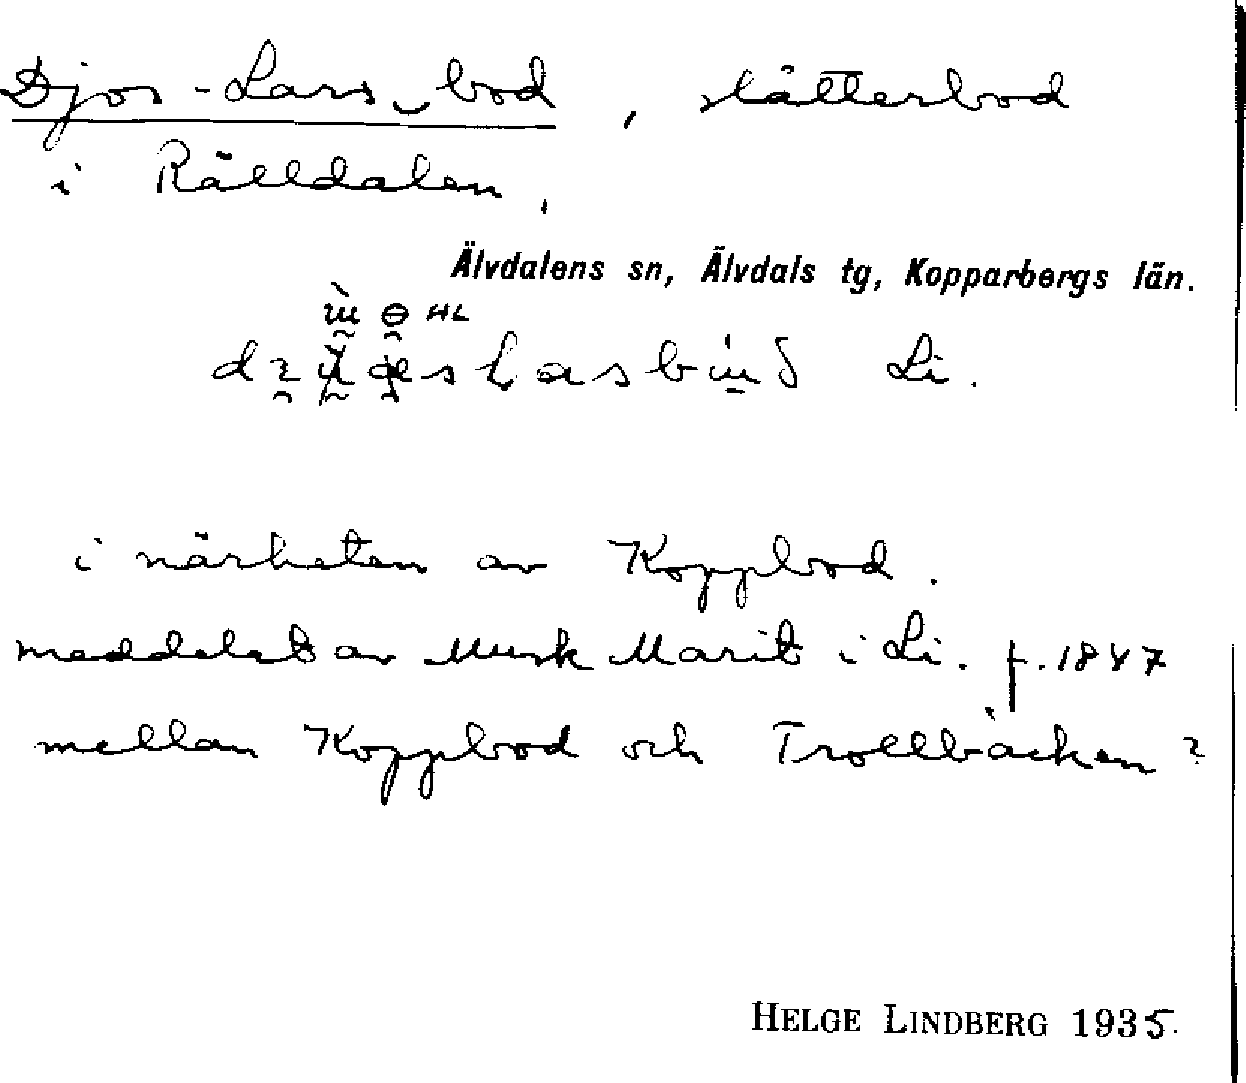 Djos-Lars bod, slåtterbod
i Rälldalen,
Älvdalens sn, Älvdals tg, Kopparbergs län.
HL
Li.
i närheten av Koppbod.
meddelat av Munk Marit i Li. f. 1847
mellan Koppbod och Trollbäcken?
HELGE LINDBERG 1935.